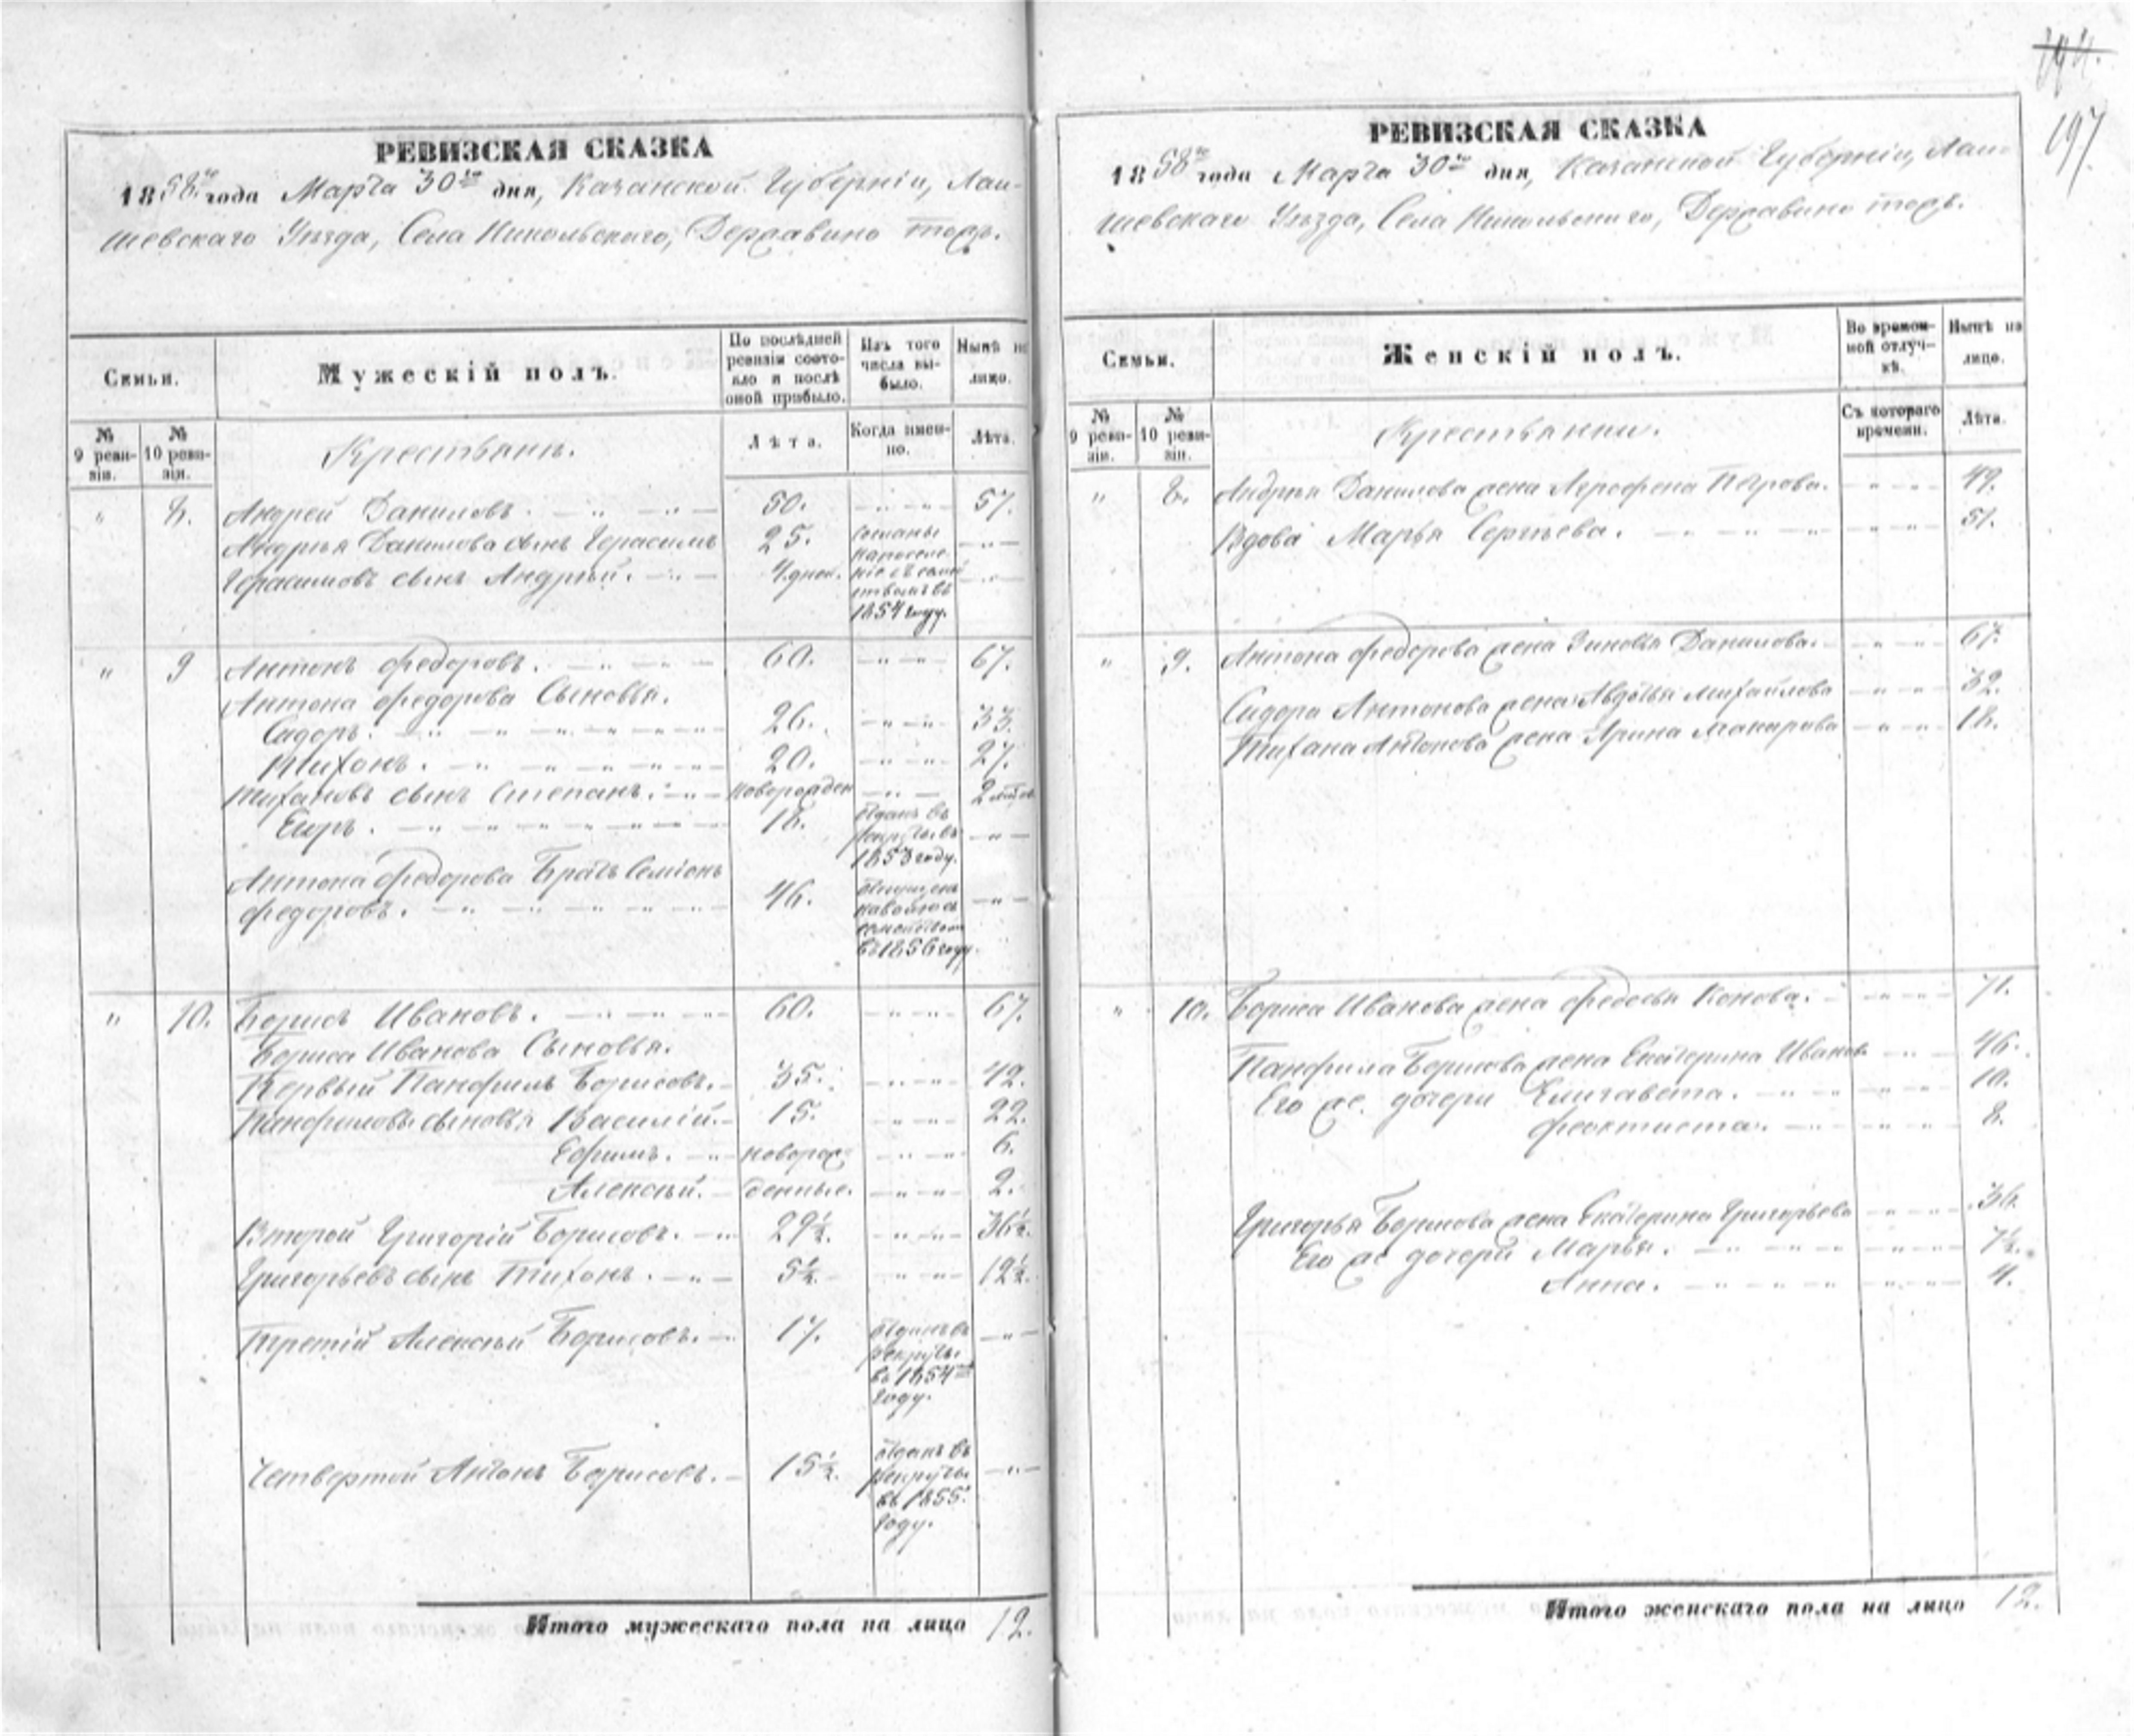 194.
197
РЕВИЗСКАЯ СКАЗКА
1858го года Марта 30го дня, Казанской Губерніи, Лаи-
шевскаго Уѣзда, Села Никольскаго, Державино тожъ.
Семьи.
Мужескій полъ.
По послѣдней ревизіи состо-
яло и послѣ оной прибыло.
Изъ того числа вы-
было.
Нынѣ на лицо.
№ 9 реви-
зіи.
№ 10 реви-
зіи.
Крестьяне.
Лѣта.
Когда имен-
но.
Лѣта.
" 8. Андрей Даниловъ. 50. 57.
Андрея Данилова сынъ Герасимъ 25. сосланы
Герасимовъ сынъ Андрей. 4 дней. на поселе-
ніе съ семей-
ствомъ въ
1854 году.
" 9 Антонъ Федоровъ. 60. 67.
Антона Федорова Сыновья.
Сидоръ. 26. 33.
Тихонъ. 20. 27.
Тихоновъ сынъ Степанъ. новорожден 2
Егоръ. 18. отданъ въ
рекруты въ
1853 году.
Антона Федорова Братъ Семіонъ
Федоровъ. 46. отпущенъ
на волю съ
семействомъ
въ 1856 году.
" 10. Борисъ Ивановъ. 60. 67.
Бориса Иванова Сыновья.
Первый Панфилъ Борисовъ. 35. 42.
Панфиловы сыновья Василій. 15. 22.
Ефимъ. новорож- 6.
Алексѣй. денные. 2.
Второй Григорій Борисовъ. 29½. 36½.
Григорьевъ сынъ Тихонъ. 5½. 12½.
Третій Алексѣй Борисовъ. 17. отданъ въ
рекруты
въ 1854м
году.
Четвертой Антонъ Борисовъ. 15½. отданъ въ
рекруты
въ 1855.
году.
Итого мужескаго пола на лицо 12.
РЕВИЗСКАЯ СКАЗКА
1858го года Марта 30го дня, Казанской Губерніи, Лаи-
шевскаго Уѣзда, Села Никольскаго, Державино тожъ.
Семьи.
Женскій полъ.
Во времен-
ной отлуч-
кѣ.
Нынѣ на лицо.
№ 9 реви-
зіи.
№ 10 реви-
зіи.
Крестьянки.
Съ котораго времени.
Лѣта.
" 8. Андрея Данилова жена Петрова. 49.
Вдова Марья Сергѣева. 51.
" 9. Антона Федорова жена Зиновья Данилова. 67.
Сидора Антонова жена Авдотья Михайлова 32.
Тихана Антонова жена Арина Макарова 18.
" 10. Бориса Иванова жена Федосья Конова. 71.
Панфила Борисова жена Екатерина Иванов. 46.
Его же дочери Елизавета. 10.
Феоктиста. 8.
Григорья Борисова жена Екатерина Григорьева 36.
Его же дочери Марья. 7½.
Анна. 4.
Итого женскаго пола на лицо 12.